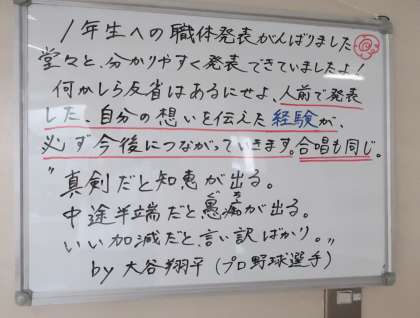 1年生への職体発表がんばりました
堂々と、分かりやすく発表できていましたよ!
何かしら反省はあるにせよ、人前で発表
した、自分の想いを伝えた経験が、
必ず今後につながっていきます。合唱も同じ。
"真剣だと知恵が出る。
中途半端だと愚痴が出る。
いい加減だと言い訳ばかり。"
by 大谷翔平(プロ野球選手)